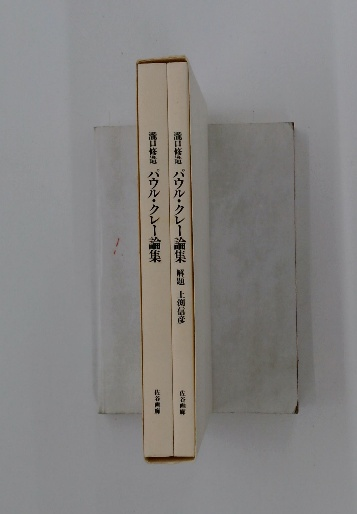 瀧口修造 パウル・クレー論集 解題 土渕信彦 佐谷画廊
瀧口修造 パウル・クレー論集 佐谷画廊